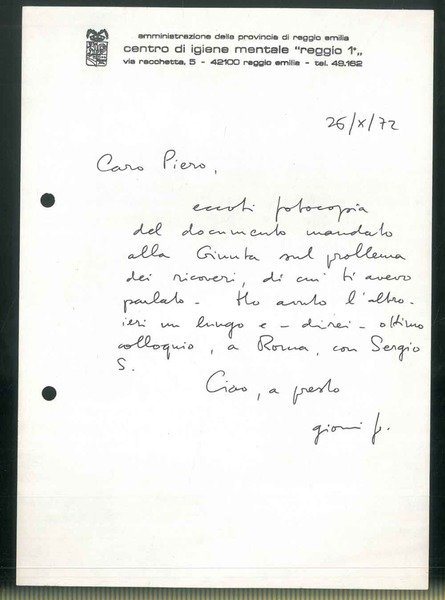 amministrazione della provincia di reggio emilia
centro di igiene mentale "reggio 1°"
via racchetta, 5 - 42100 reggio emilia - tel. 49.162
26/X/72
Caro Piero,
eccoti fotocopia
del documento mandato
alla Giunta sul problema
dei ricoveri, di cui ti avevo
parlato - Ho avuto l'altro-
ieri un lungo e - direi - ottimo
colloquio, a Roma, con Sergio
S.
Ciao, a presto